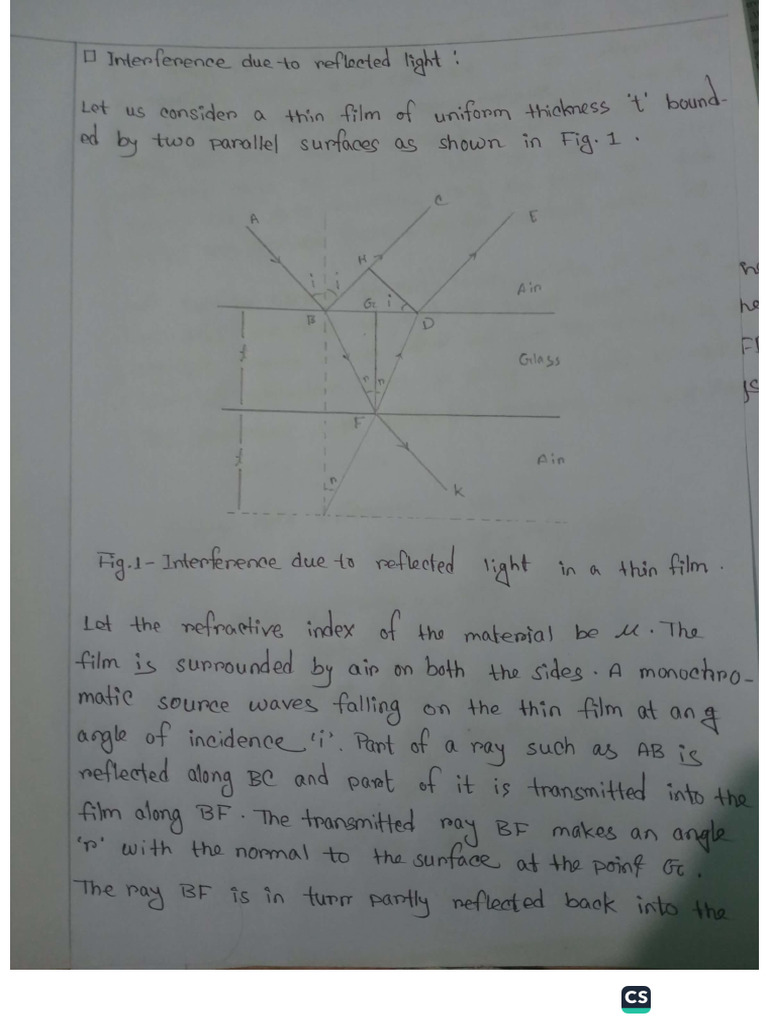 □ Interference due to reflected light :
Let us consider a thin film of uniform thickness 't' bound-
ed by two parallel surfaces as shown in Fig. 1 .
A
C
E
H
i
i
G
i
Air
B
D
t
Glass
r
r
F
t
Air
r
K
Fig.1 - Interference due to reflected light in a thin film .
Let the refractive index of the material be μ . The
film is surrounded by air on both the sides . A monochro-
matic source waves falling on the thin film at an
angle of incidence 'i'. Part of a ray such as AB is
reflected along BC and part of it is transmitted into the
film along BF . The transmitted ray BF makes an angle
'r' with the normal to the surface at the point G .
The ray BF is in turn partly reflected back into the
CS